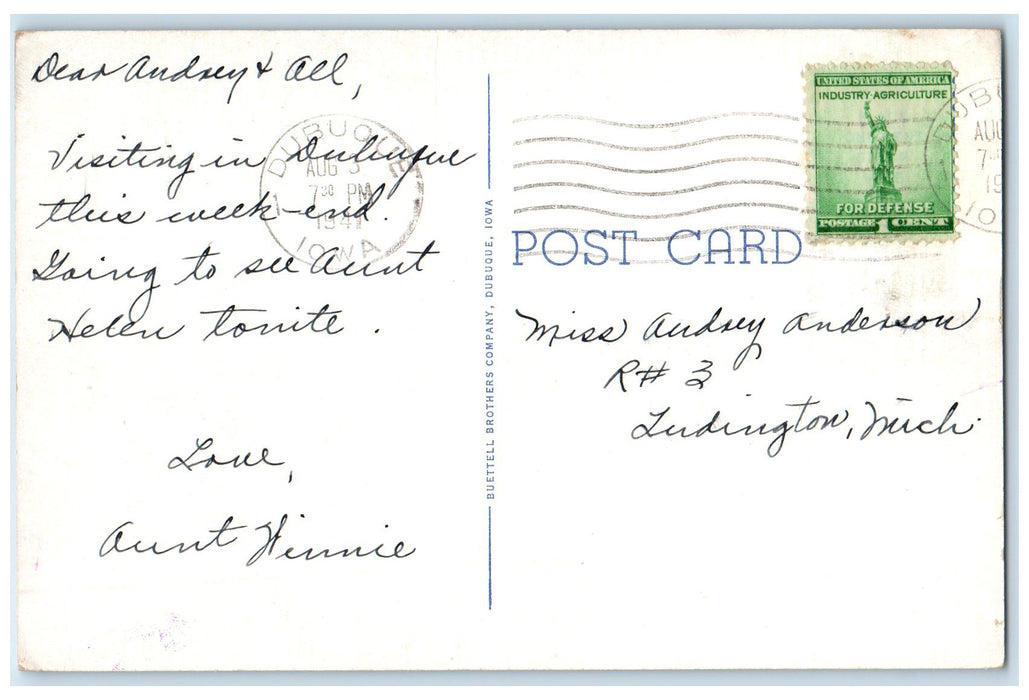 Dear Audrey & All,
Visiting in Dubuque
this week-end.
Going to see Aunt
Helen tonite.
Love,
Aunt Winnie
DUBUQUE
AUG 3
7 30 PM
1941
IOWA
BUETTELL BROTHERS COMPANY, DUBUQUE, IOWA
UNITED STATES OF AMERICA
INDUSTRY-AGRICULTURE
FOR DEFENSE
POSTAGE 1 CENT
DUB
AUG
7 30
19
IO
POST CARD
Miss Audrey Anderson
R# 3
Ludington, Mich.